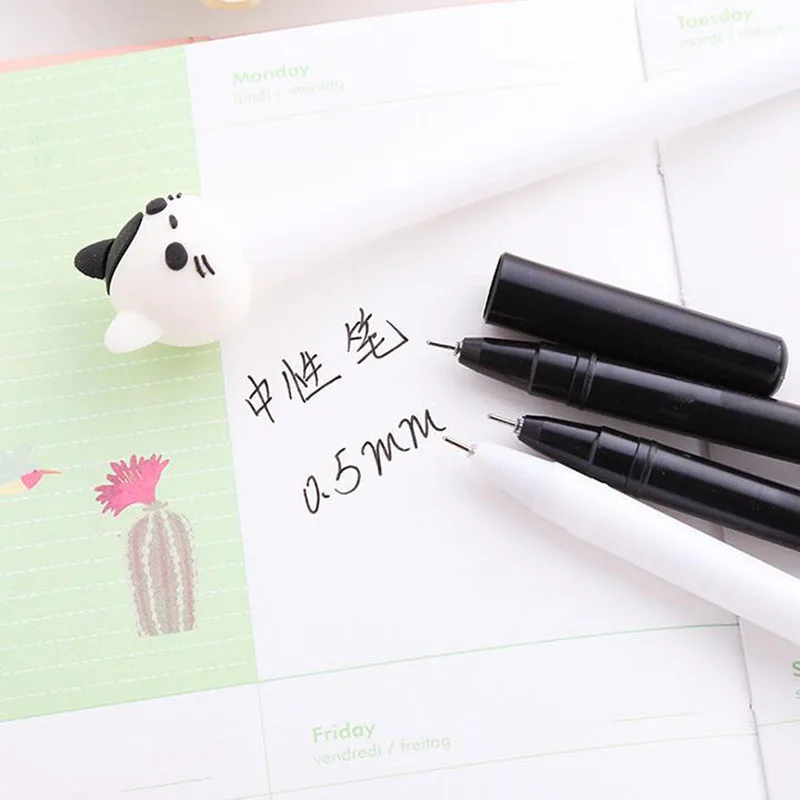 Monday
lundi / montag
Tuesday
mardi /
中性笔
0.5mm
Friday
vendredi / freitag